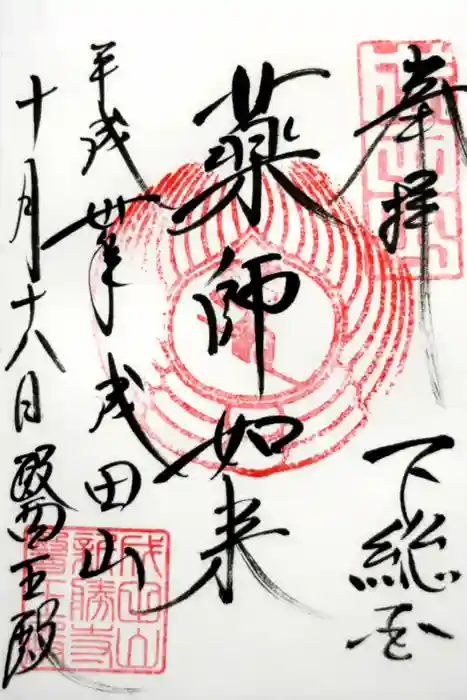 奉拝 下総国
薬師如来
平成卅年 成田山
十月十八日 醫王殿
成田山
新勝寺
醫王殿